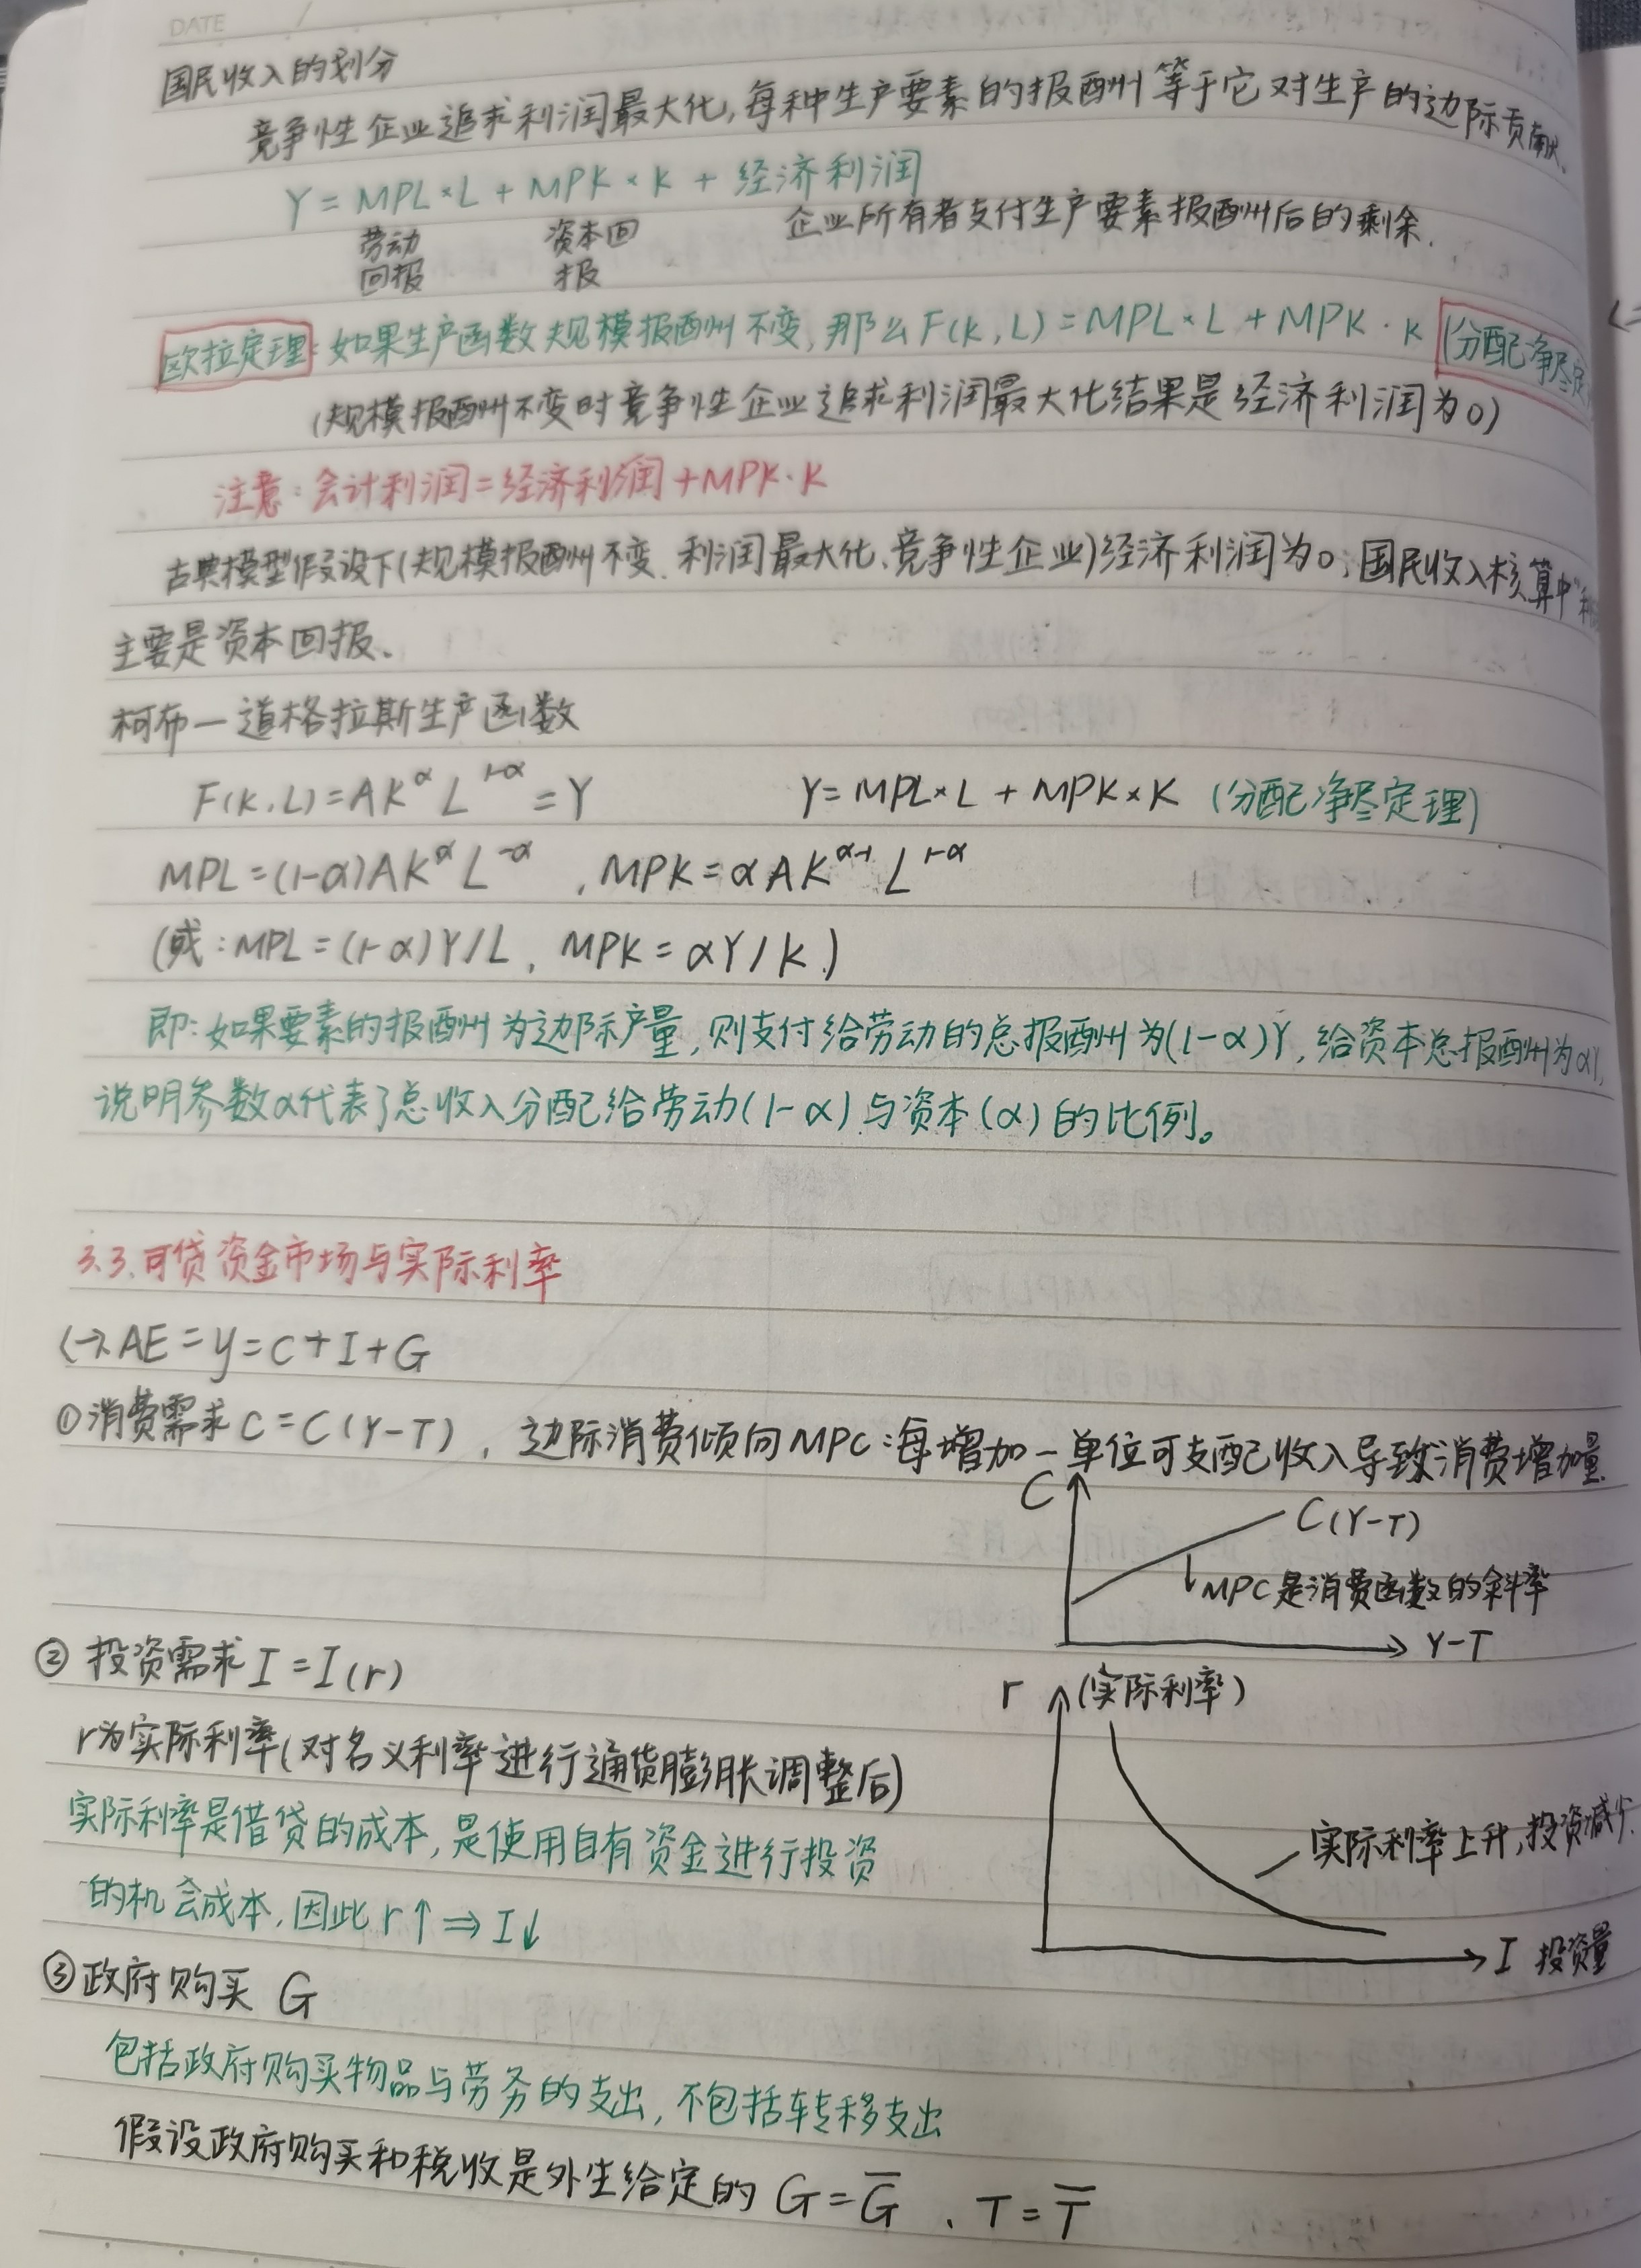 DATE /
国民收入的划分
竞争性企业追求利润最大化,每种生产要素的报酬等于它对生产的边际贡献.
Y = MPL×L + MPK×K + 经济利润
劳动回报 资本回报 企业所有者支付生产要素报酬后的剩余.
欧拉定理:如果生产函数规模报酬不变,那么F(K,L)=MPL×L+MPK·K (分配净尽定
(规模报酬不变时竞争性企业追求利润最大化结果是经济利润为0)
注意:会计利润=经济利润+MPK·K
古典模型假设下(规模报酬不变、利润最大化、竞争性企业)经济利润为0;国民收入核算中"利
主要是资本回报、
柯布—道格拉斯生产函数
F(K,L)=AK^α L^1-α=Y Y=MPL×L+MPK×K (分配净尽定理)
MPL=(1-α)AK^α L^-α ,MPK=αAK^α-1 L^1-α
(或:MPL=(1-α)Y/L,MPK=αY/K)
即:如果要素的报酬为边际产量,则支付给劳动的总报酬为(1-α)Y,给资本总报酬为αY,
说明参数α代表了总收入分配给劳动(1-α)与资本(α)的比例。
3.3.可贷资金市场与实际利率
(一)AE=y=C+I+G
①消费需求C=C(Y-T),边际消费倾向MPC:每增加一单位可支配收入导致消费增加量.
C
C(Y-T)
MPC是消费函数的斜率
Y-T
②投资需求I=I(r)
r (实际利率)
r为实际利率(对名义利率进行通货膨胀调整后)
实际利率是借贷的成本,是使用自有资金进行投资
实际利率上升,投资减少.
的机会成本,因此r↑⇒I↓
I 投资量
③政府购买 G
包括政府购买物品与劳务的支出,不包括转移支出
假设政府购买和税收是外生给定的 G=G̅、T=T̅